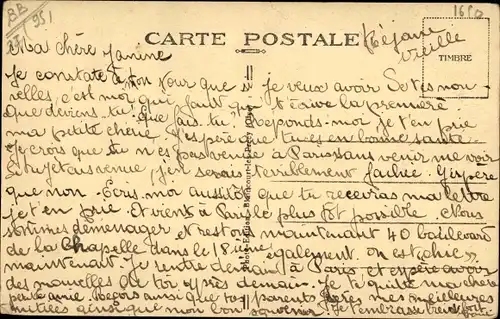 BB
951
1650
Réjane
vieille
Ma chère Janine
CARTE POSTALE
TIMBRE
Je constate à mon tour que si je veux avoir de tes nou-
velles, c'est moi qui faut que t'écive la première.
Que deviens-tu? Que fais-tu? Réponds-moi je t'en prie
ma petite chérie. J'espère que tu es en bonne santé
Je crois que tu n'es pas venue à Paris sans venir me voir
Si tu y étais venue, j'en serais terriblement fachée. J'espère
que non. Écris-moi aussitôt que tu recevras ma lettre
je t'en prie. Et vient à Paris le plus tôt possible. Nous
sommes déménager et restons maintenant 40 boulevard
de la Chapelle dans le 18ième également. On est "chic"
maintenant. Je rentre demain à Paris et espère avoir
des nouvelles de toi, après-demain. Je te quitte ma chère
petite amie. Reçois ainsi que tes parents mes meilleures
amitiées ainsi que mon bon souvenir. Je t'embrasse bien fort